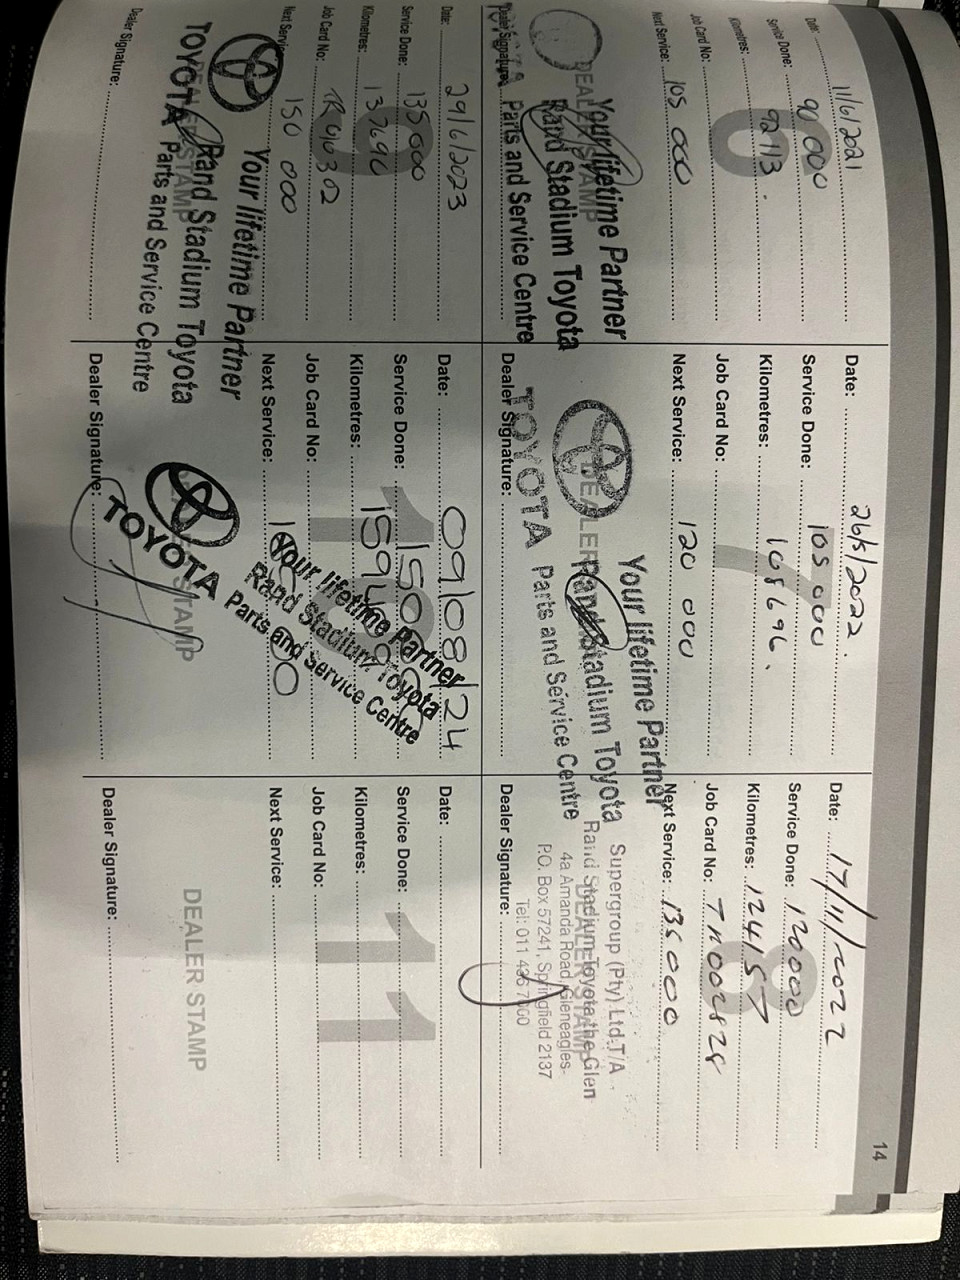 14
Date: 11/6/2021
Service Done: 90 000
Kilometres: 92113.
Job Card No:
Next Service: 105 000
6
DEALER STAMP
Your lifetime Partner
Rand Stadium Toyota
Parts and Service Centre
Dealer Signature:
Date: 26/5/2022.
Service Done: 105 000
Kilometres: 108696.
Job Card No:
Next Service: 120 000
7
DEALER STAMP
Your lifetime Partner
Rand Stadium Toyota
TOYOTA Parts and Service Centre
Dealer Signature:
Date: 17/11/2022
Service Done: 120000
Kilometres: 124157
Job Card No:
Next Service: 135000
8
DEALER STAMP
Supergroup (Pty) Ltd.T/A
Rand Stadium Toyota the Glen
4a Amanda Road, Gleneagles
P.O. Box 57241, Springfield 2137
Tel: 011
Dealer Signature:
Date: 29/6/2023
Service Done: 135000
Kilometres: 137690
Job Card No:
Next Service: 150 000
9
DEALER STAMP
Your lifetime Partner
Rand Stadium Toyota
TOYOTA Parts and Service Centre
Dealer Signature:
Date: 09/08/24
Service Done:
Kilometres:
Job Card No:
Next Service:
10
DEALER STAMP
Your lifetime Partner
Rand Stadium Toyota
TOYOTA Parts and Service Centre
Dealer Signature:
Date:
Service Done:
Kilometres:
Job Card No:
Next Service:
11
DEALER STAMP
Dealer Signature: